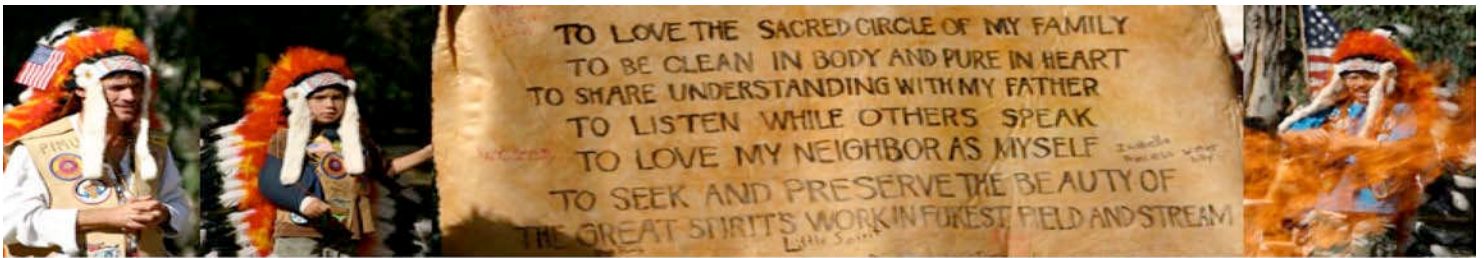 PIMU
TO LOVE THE SACRED CIRCLE OF MY FAMILY
TO BE CLEAN IN BODY AND PURE IN HEART
TO SHARE UNDERSTANDING WITH MY FATHER
TO LISTEN WHILE OTHERS SPEAK
TO LOVE MY NEIGHBOR AS MYSELF
Isabella
Princess
TO SEEK AND PRESERVE THE BEAUTY OF
THE GREAT SPIRIT'S WORK IN FOREST, FIELD AND STREAM
Little